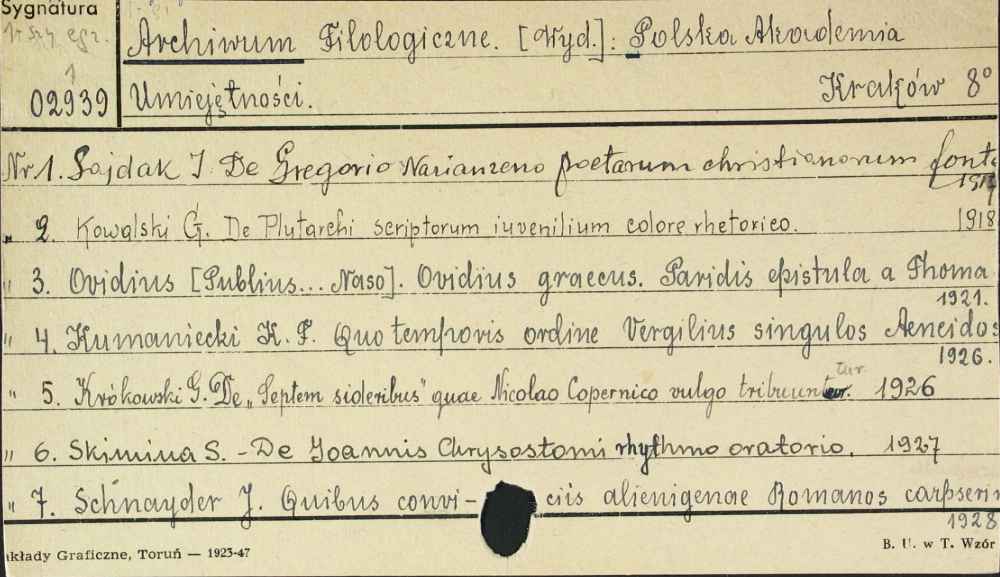 Sygnatura
1-szy egz.
Archiwum Filologiczne. [Wyd.]: Polska Akademia
1
02939 Umiejętności. Kraków 8°
Nr 1. Sajdak J. De Gregorio Nazianzeno poetarum christianorum fonte
1917
„ 2. Kowalski G. De Plutarchi scriptorum iuvenilium colore rhetorico. 1918
„ 3. Ovidius [Publius... Naso]. Ovidius graecus. Paridis epistula a Thoma
1921.
„ 4. Kumaniecki K. F. Quo temporis ordine Vergilius singulos Aeneidos
1926.
„ 5. Krókowski G. De „Septem sideribus" quae Nicolao Copernico vulgo tribuuntur. 1926
„ 6. Skimina S. - De Joannis Chrysostomi rhythmo oratorio. 1927
„ 7. Schnayder J. Quibus convi- ciis alienigenae Romanos carpserin
1928
akłady Graficzne, Toruń — 1923-47 B. U. w T. Wzór